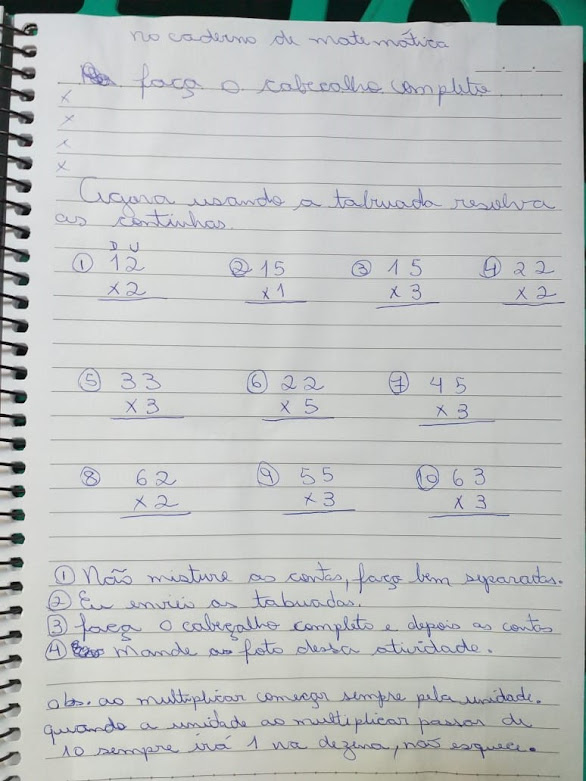 no caderno de matemática
faça o cabeçalho completo
x
x
x
x
Agora usando a tabuada resolva
as continhas.
D U
① 12 ② 15 ③ 15 ④ 22
x2 x1 x3 x2
⑤ 33 ⑥ 22 ⑦ 45
x3 x5 x3
⑧ 62 ⑨ 55 ⑩ 63
x2 x3 x3
① Não misture as contas, faça bem separadas.
② Eu enviei as tabuadas.
③ faça o cabeçalho completo e depois as contas
④ Mande a foto dessa atividade.
obs. ao multiplicar começar sempre pela unidade.
quando a unidade ao multiplicar passar de
10 sempre irá 1 na dezena, não esquece.